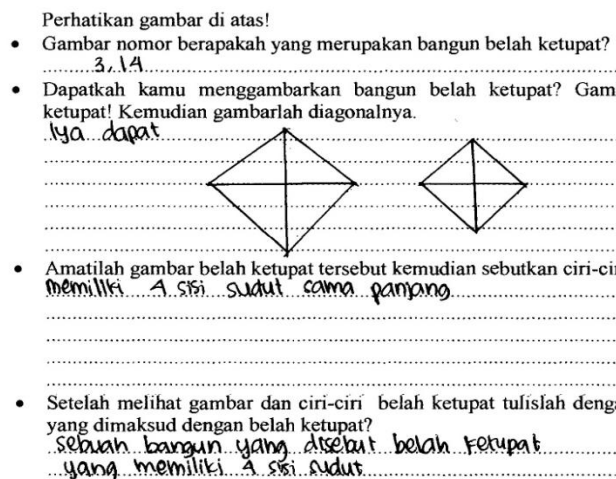 Perhatikan gambar di atas!
• Gambar nomor berapakah yang merupakan bangun belah ketupat?
3, 14
• Dapatkah kamu menggambarkan bangun belah ketupat? Gam
ketupat! Kemudian gambarlah diagonalnya.
Iya dapat
• Amatilah gambar belah ketupat tersebut kemudian sebutkan ciri-ci
memiliki 4 sisi sudut sama panjang
• Setelah melihat gambar dan ciri-ciri belah ketupat tulislah deng
yang dimaksud dengan belah ketupat?
sebuah bangun yang disebut belah ketupat
yang memiliki 4 sisi sudut